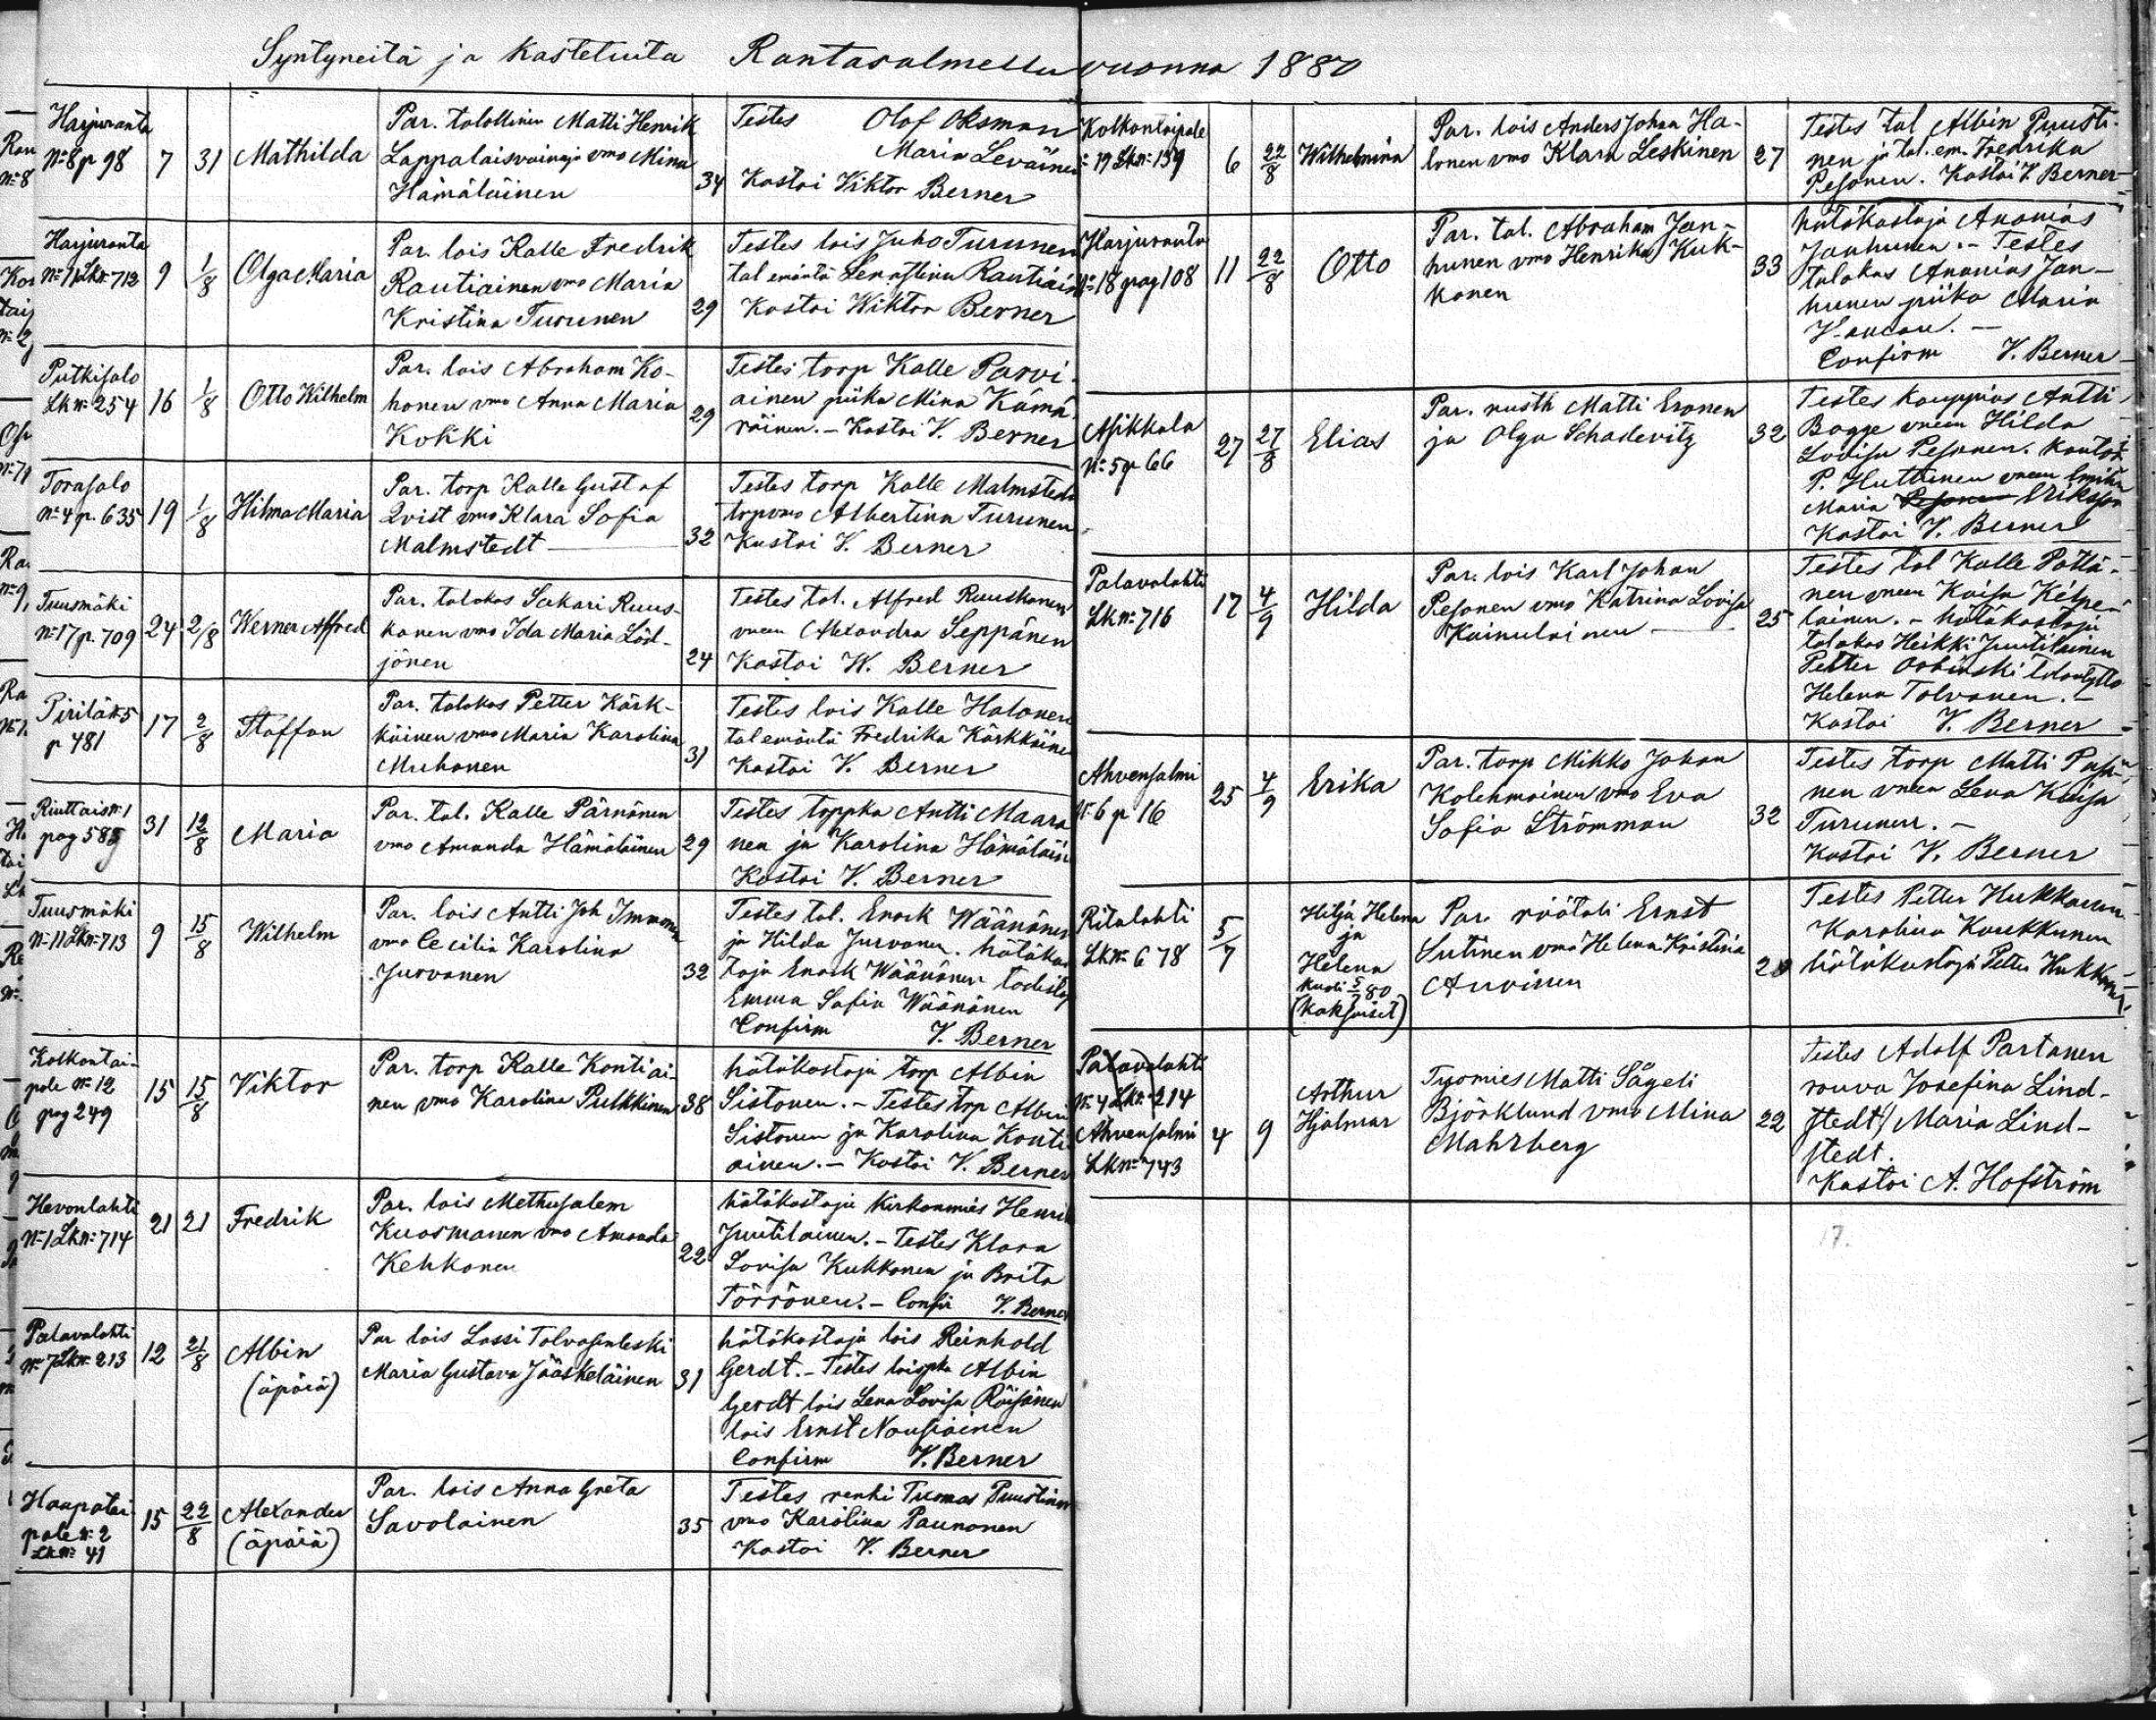 Syntyneitä ja kastetuita Rantasalmella vuonna 1880
Harjuranta
N:8 p 98
7
31
Mathilda
Par. talollinen Matti Henrik
Lappalaisvainaja vmo Mina
Hämäläinen
34
Testes Olof Oksman
Maria Leväinen
Kastoi Viktor Berner
Harjuranta
Lk N: 712
9
1/8
Olga Maria
Par. lois Kalle Fredrik
Rautiainen vmo Maria
Kristina Turunen
29
Testes lois Juho Turunen
tal emäntä Rautiain
Kastoi Wiktor Berner
Putkisalo
Lk N: 254
16
1/8
Otto Wilhelm
Par. lois Abraham Ko-
honen vmo Anna Maria
Kokki
29
Testes torp Kalle Parvi-
ainen piika Mina Kämä-
räinen. - Kastoi V. Berner
Torasalo
N: 4 p. 635
19
1/8
Hilma Maria
Par. torp Kalle Gustaf
Qvist vmo Klara Sofia
Malmstedt
32
Testes torp Kalle Malmstedt
torpvmo Albertina Turunen
Kastoi V. Berner
Tuusmäki
N: 17 p. 709
24
2/8
Werner Alfred
Par. talokas Sakari Ruus-
kanen vmo Ida Maria Löd-
jönen
24
Testes tal. Alfred Ruuskanen
vmeen Alexandra Seppänen
Kastoi W. Berner
Pirilä N: 5
p 481
17
2/8
Staffan
Par. talokas Petter Kärk-
käinen vmo Maria Karolina
Muhonen
31
Testes lois Kalle Halonen
tal emäntä Fredrika Kärkkäine
Kastoi V. Berner
N: 1
pag 585
31
12/8
Maria
Par. tal. Kalle Pärnänen
vmo Amanda Hämäläinen
29
Testes torppka Antti Maara
nen ja Karolina Hämäläin
Kastoi V. Berner
Tuusmäki
N: 11 Lk N: 713
9
15/8
Wilhelm
Par. lois Antti Joh Immonen
vmo Cecilia Karolina
Jurvanen
32
Testes tal. Enock Wäänänen
ja Hilda Jurvanen. hätäkas
taja Enock Wäänänen todistaj
Emma Sofia Wäänänen
Confirm V. Berner
Kolkontai-
pale N: 12
pag 249
15
15/8
Viktor
Par. torp Kalle Kontiai-
nen vmo Karolina Pulkkinen
38
hätäkastaja torp Albin
Sistonen. - Testes torp Albin
Sistonen ja Karolina Konti
ainen. - Kastoi V. Berner
Hevonlahti
N: 1 Lk N: 714
21
21
Fredrik
Par. lois Methusalem
Kuosmanen vmo Amanda
Kehkonen
22
hätäkastaja kirkonmies Henrik
Juutilainen. - Testes Klara
Lovisa Kukkonen ja Brita
Törrönen. - Confir V. Berner
Palavalahti
N: 7 Lk N: 213
12
21/8
Albin
(äpärä)
Par lois Lassi Tolvasenleski
Maria Gustava Jääskeläinen
31
hätäkastaja lois Reinhold
Gerdt. - Testes loispka Albin
Gerdt lois Lena Lovisa Räisänen
lois Ernst Nousiainen
Confirm V. Berner
Haapatai-
pale N: 2
Lk N: 41
15
22/8
Alexander
(äpärä)
Par. lois Anna Greta
Savolainen
35
Testes renki Tuomas Puustinen
vmo Karolina Paunonen
Kastoi V. Berner
Kolkontaipale
N: 19 Lk N: 159
6
22/8
Wilhelmina
Par. lois Anders Johan Ha-
lonen vmo Klara Leskinen
27
Testes tal Albin Puusti-
nen ja tal. em. Fredrika
Pesonen. Kastoi V. Berner
Harjuranta
N: 18 pag 108
11
22/8
Otto
Par. tal. Abraham Jan-
hunen vmo Henrika Kuk-
konen
33
hätäkastaja Ananias
Janhunen. - Testes
talokas Ananias Jan-
hunen piika Maria
Confirm V. Berner
Asikkala
N: 5 p 66
27
27/8
Elias
Par. rusth Matti Eronen
ja Olga Schadevitz
32
Testes kauppias Antti
Bagge vmeen Hilda
Lovisa Pesonen. kantor
P. Huttunen vmeen
Maria Pesonen Eriksson
Kastoi V. Berner
Palavalahti
Lk N: 716
17
4/9
Hilda
Par. lois Karl Johan
Pesonen vmo Katrina Lovisa
Kainulainen
25
Testes tal Kalle Pottä-
nen vmeen Kaisa Kelpe-
läinen. - hätäkastaja
talokas Heikki Juutilainen
Petter
Helena Tolvanen. -
Kastoi V. Berner
Ahvensalmi
N: 6 p 16
25
4/9
Erika
Par. torp Mikko Johan
Kolehmainen vmo Eva
Sofia Strömman
32
Testes torp Matti
nen vmeen Lena Kaisa
Turunen. -
Kastoi V. Berner
Ritalahti
Lk N: 678
5/7
Hilja Helena
ja
Helena
kuoli 5/7 80
(kaksoiset)
Par. räätali Ernst
Sutinen vmo Helena Kristina
Auvinen
Testes Petter Hukkanen
Karolina Kaukkunen
hätäkastaja Petter Hukkanen
Palavalahti
N: 4 Lk N: 214
Ahvensalmi
Lk N: 743
4
9
Arthur
Hjalmar
Tyomies Matti Sägeli
Björklund vmo Mina
Mahrberg
22
Testes Adolf Partanen
rouva Josefina Lind-
stedt/ Maria Lind-
stedt.
Kastoi A. Hofström